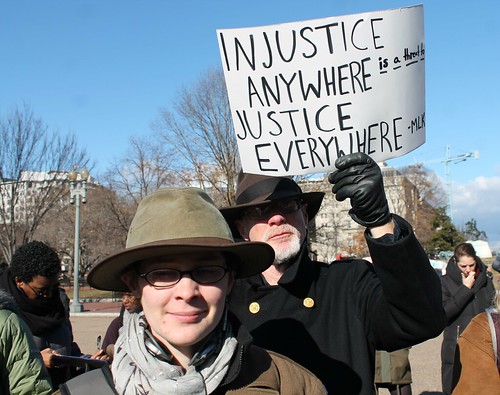 INJUSTICE
ANYWHERE is a threat to
JUSTICE
EVERYWHERE -MLK